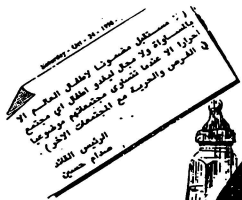 Saturday - Oct - 21 - 1995
( مستقبل مضموناً لاطفال العالم الا
بالمساواة ولا مجال ليغدو اطفال اي مجتمع
احراراً الا عندما تتساوى مجتمعهم موضوعياً
في الفرص والحرية مع المجتمعات الاخر )
الرئيس القائد
صدام حسين